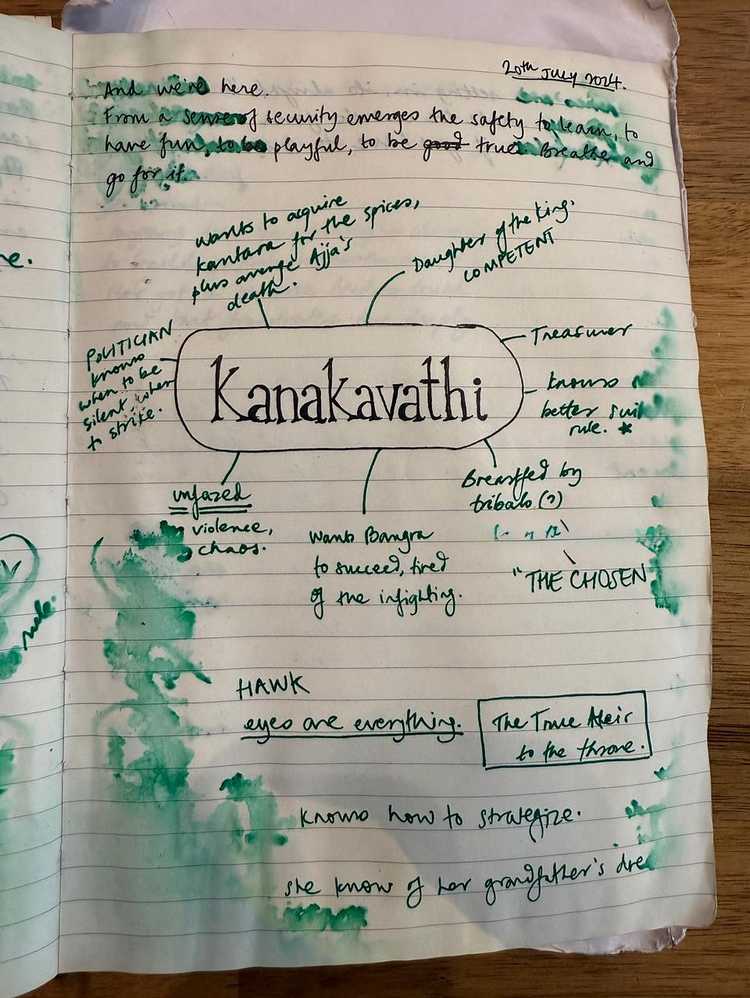 20th July 2024.
And we're here.
From a sense of security emerges the safety to learn, to
have fun, to be playful, to be good true. Breathe and
go for it.
wants to acquire
kantara for the spices,
plus avenge Ajja's
death.
Daughter of the King.
COMPETENT
POLITICIAN
knows
when to be
silent when
to strike.
Kanakavathi
Treasurer
knows
better
rule. *
unfazed
violence,
chaos.
wants Bangra
to succeed, tired
of the infighting.
Breastfed by
tribals (?)
"THE CHOSEN
HAWK
eyes are everything.
The True Heir
to the throne.
knows how to strategize.
she know of her grandfather's
e.